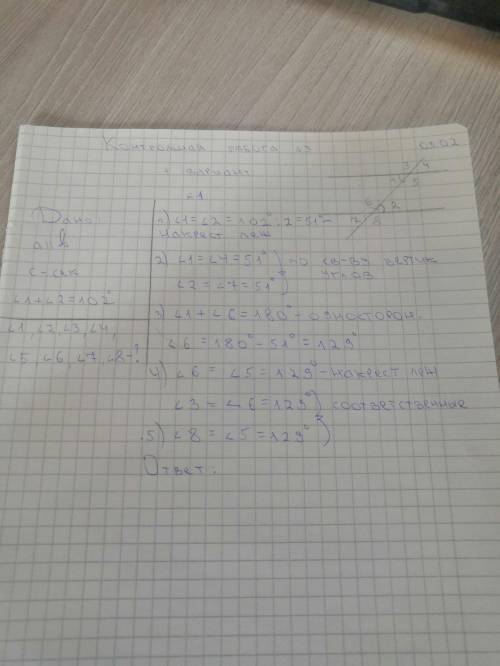 Контрольная работа №3
02
1 вариант
№1
Дано:
a||b
c-сек
∠1+∠2=102°
∠1,∠2,∠3,∠4,
∠5,∠6,∠7,∠8-?
1) ∠1=∠2=102°:2=51°-
накрест леж
2) ∠1=∠4=51° } по св-ву вертик
∠2=∠7=51° } углов
3) ∠1+∠6=180°- односторон.
∠6=180°-51°=129°
4) ∠6=∠5=129°-накрест леж
∠3=∠6=129° } соответственные
5) ∠8=∠5=129° }
Ответ:
3 4
1 5
6 2
7 8